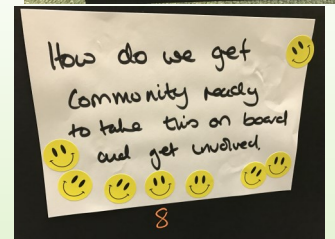 How do we get
Community ready
to take this on board
and get involved.
8